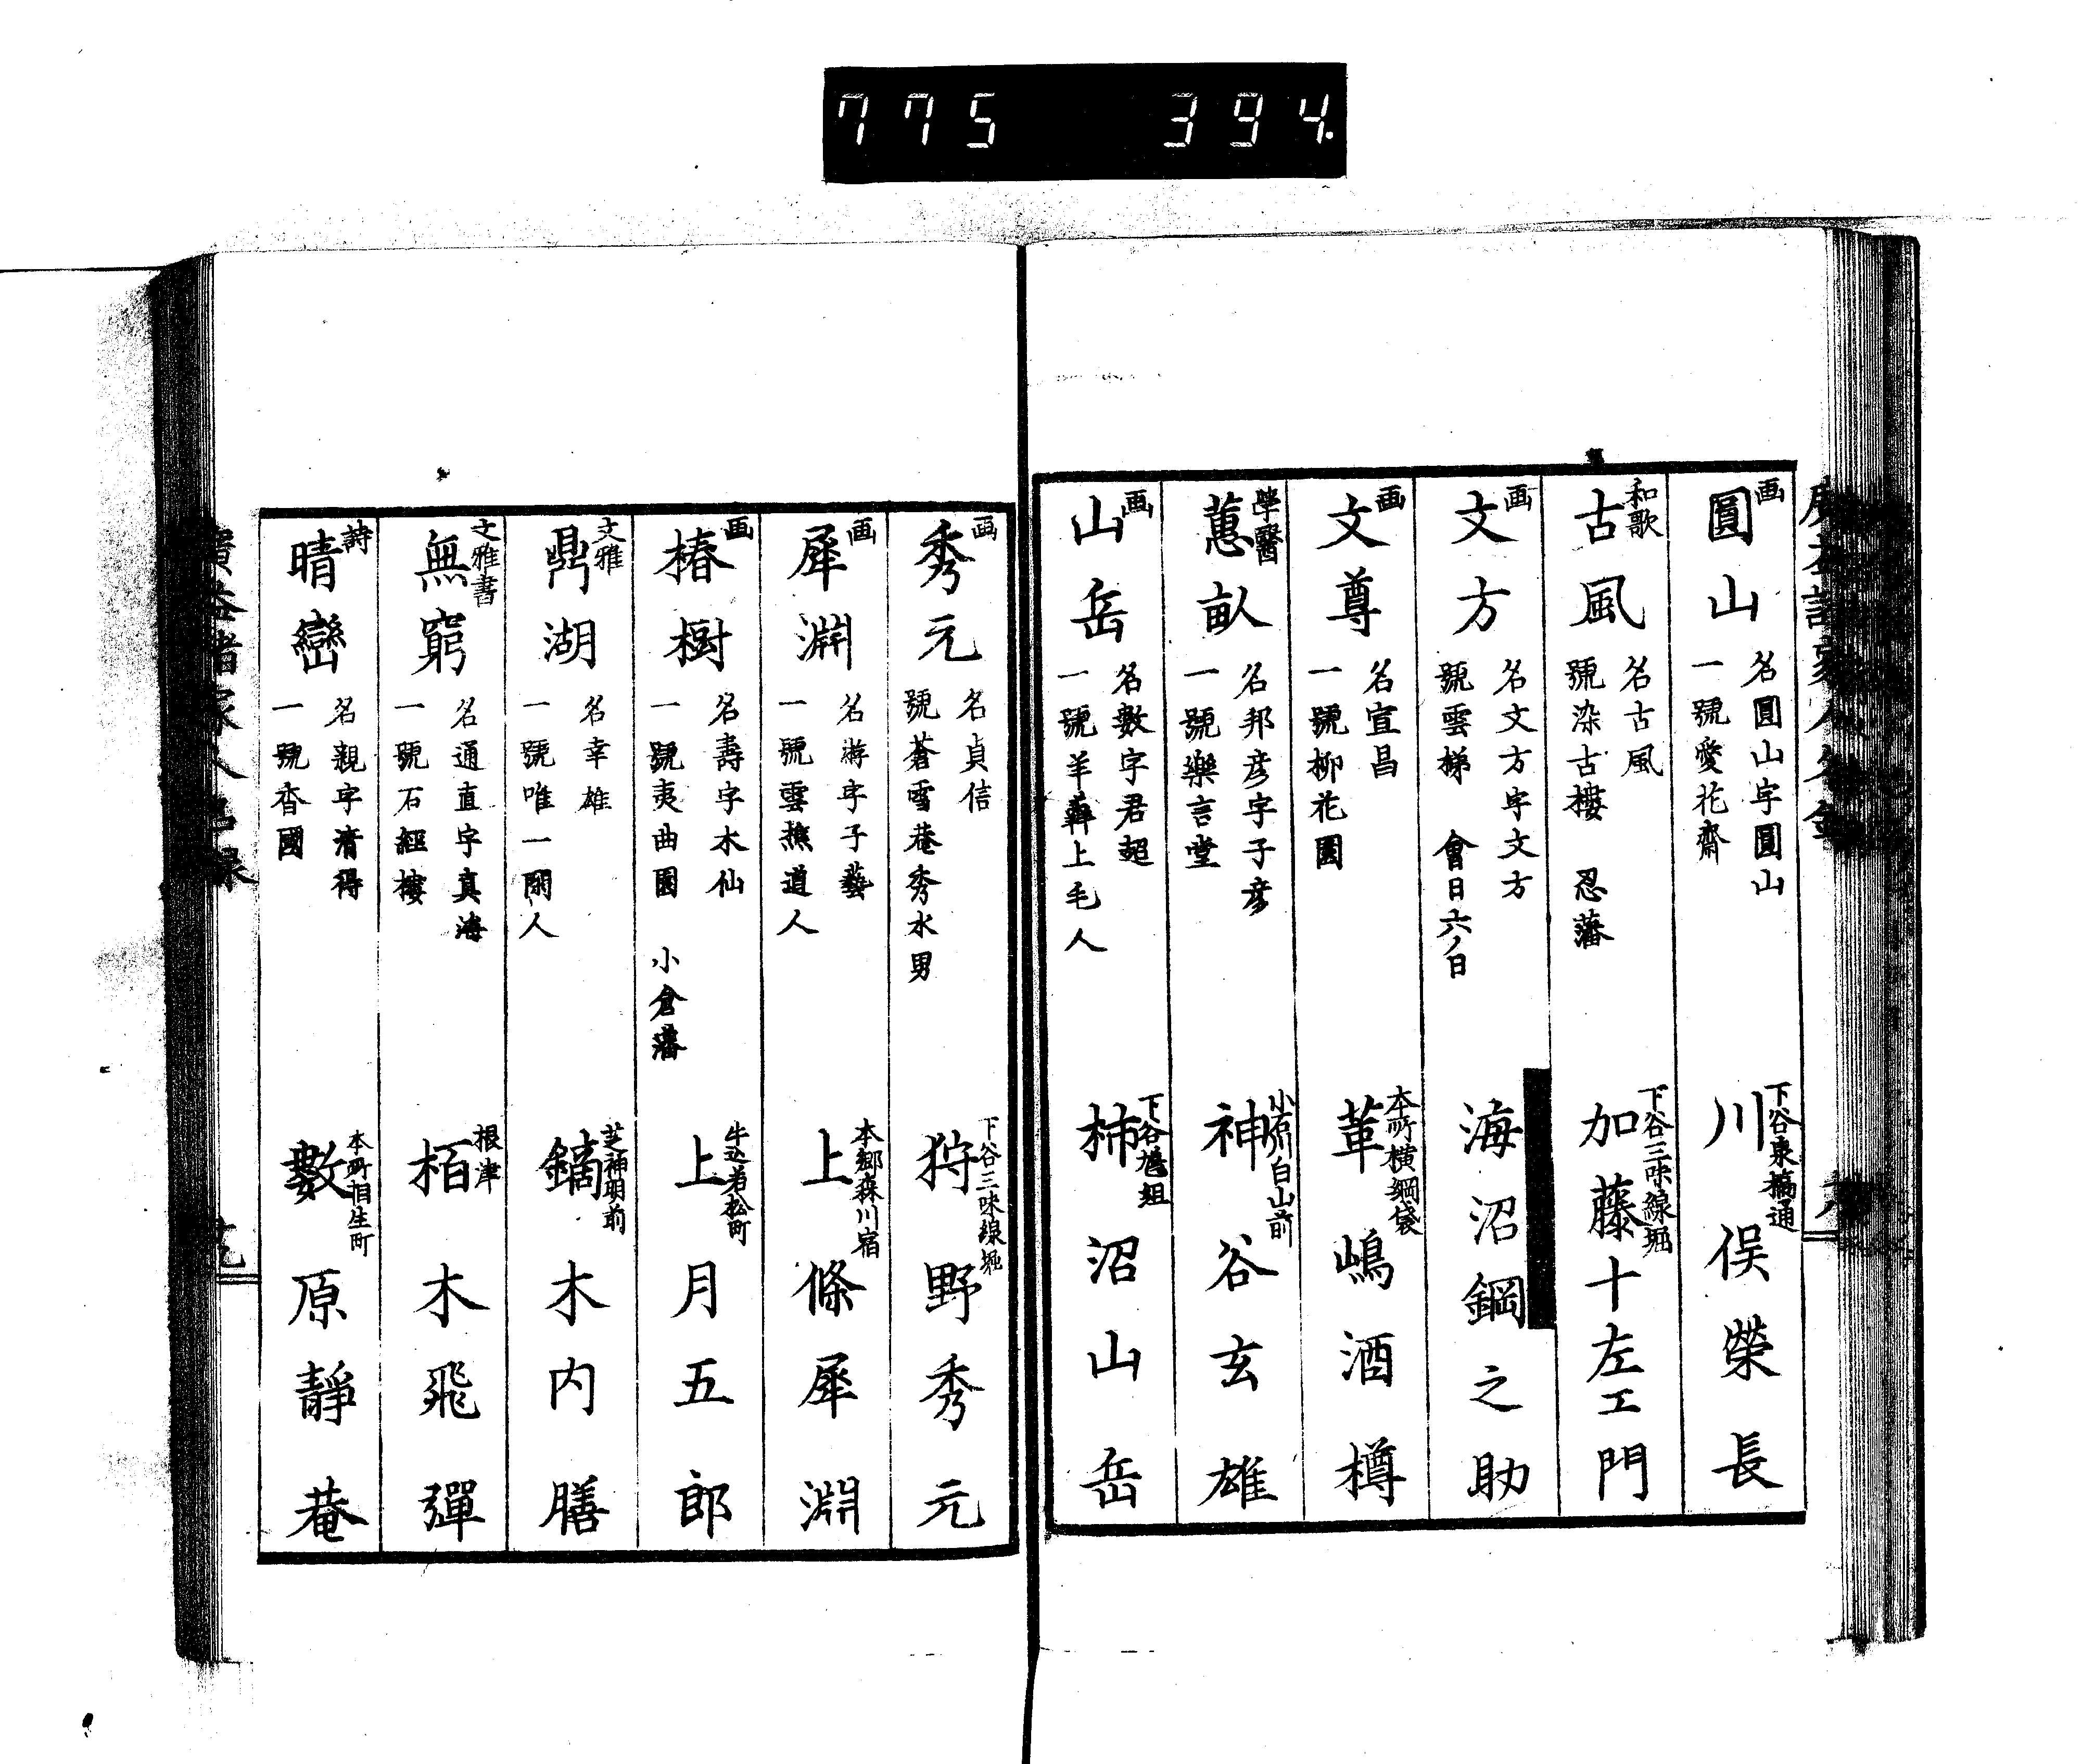 775 394.
画
圓山
名圓山字圓山
一號愛花齋
下谷泉橋通
川俣榮長
和歌
古風
名古風
號染古樓 忍藩
下谷三味線堀
加藤十左工門
画
文方
名文方字文方
號雲梯 會日六ノ日
海沼鋼之助
画
文尊
名宜昌
一號柳花園
本所横網袋
葦嶋酒樽
學醫
蕙畝
名邦彦字子彦
一號樂言堂
小石川白山前
神谷玄雄
画
山岳
名數字君超
一號羊舞上毛人
下谷組
柿沼山岳
画
秀元
名貞信
號蒼雪巷秀水男
下谷三味線堀
狩野秀元
画
犀淵
名游字子藝
一號雲樵道人
本郷森川宿
上條犀淵
画
椿樹
名壽字木仙
一號夷曲園 小倉藩
牛込若松町
上月五郎
文雅
鼎湖
名幸雄
一號唯一閑人
芝神明前
鏑木内膳
文雅書
無窮
名通直字真海
一號石經樓
根津
栢木飛彈
詩
晴巒
名親字清得
一號香國
本所相生町
數原靜菴
廣益諸家人名録